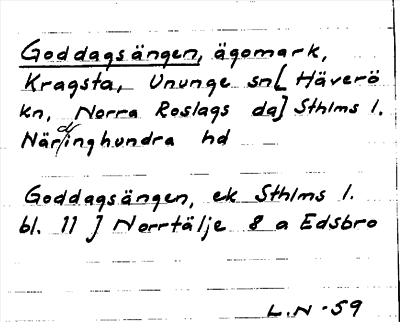 Goddagsängen, ägomark,
Kragsta, Ununge sn[ Häverö
kn, Norra Roslags da] Sthlms l.
Närdinghundra hd
Goddagsängen, ek Sthlms l.
bl. 11 ] Norrtälje 8 a Edsbro
L.N -59